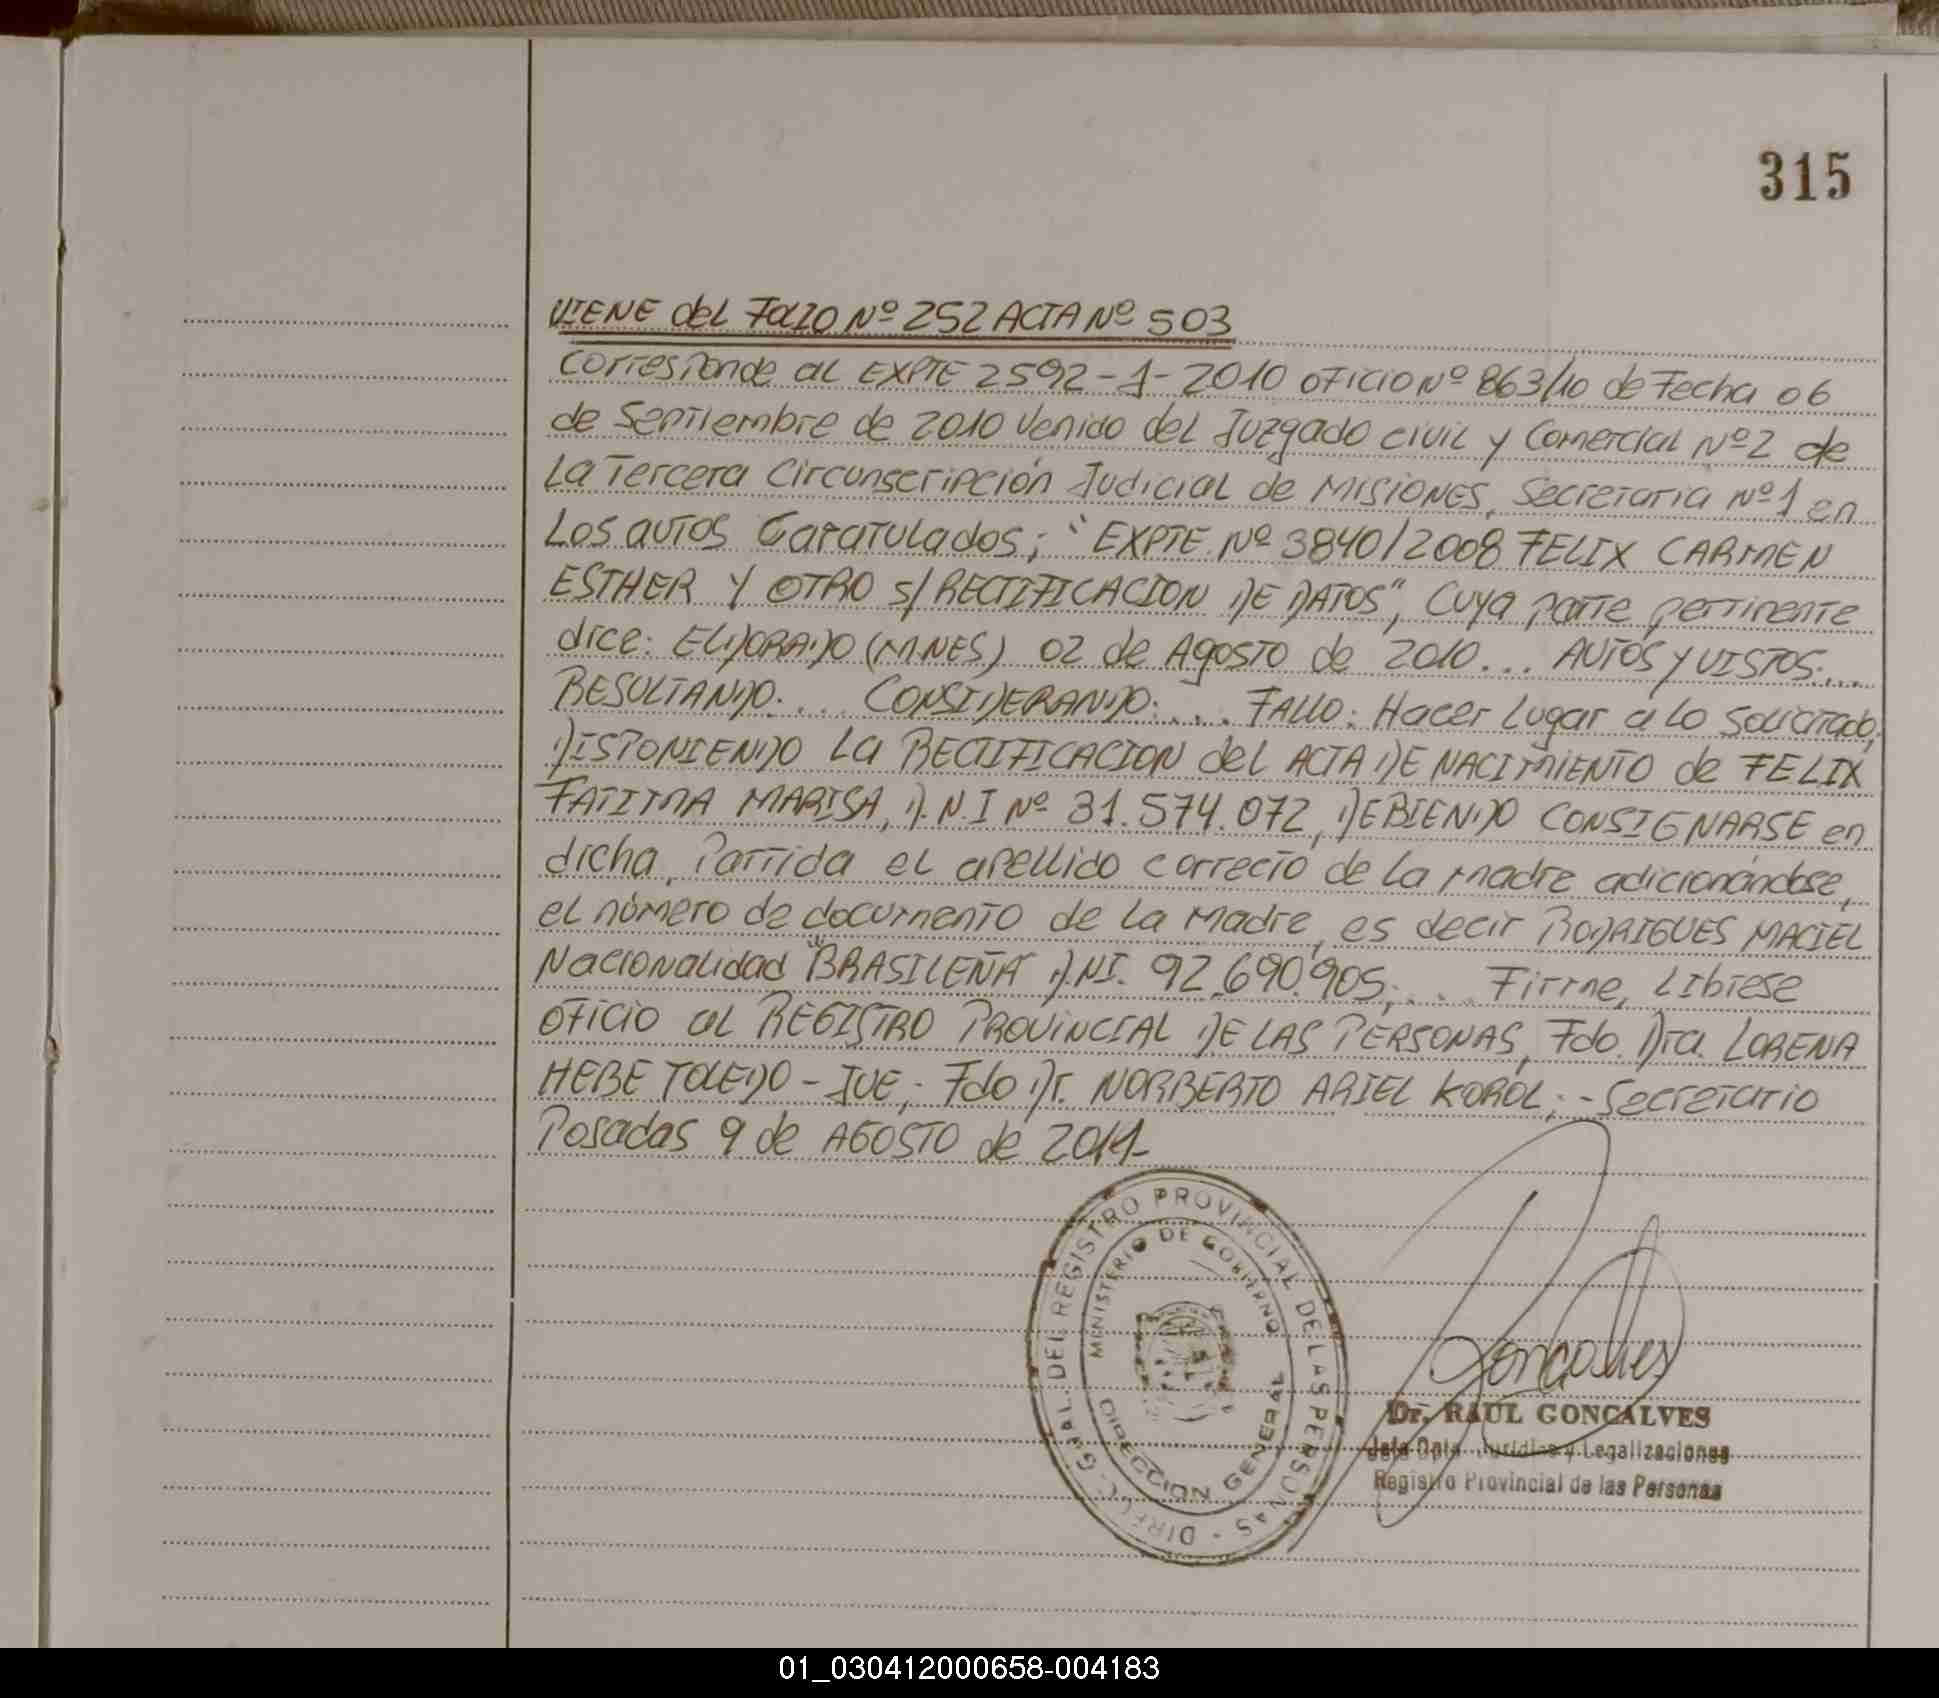 315
VIENE del FOLIO Nº 252 ACTA Nº 503
Corresponde al EXPTE 2592-1-2010 oficio Nº 863/10 de Fecha 06
de Septiembre de 2010 Venido del Juzgado civil y Comercial Nº2 de
La Tercera Circunscripción Judicial de MISIONES, Secretaria Nº1 en
Los autos Caratulados; "EXPTE. Nº 3840/2008 FELIX CARMEN
ESTHER Y OTRO S/ RECTIFICACION DE DATOS", Cuya parte pertinente
dice: ELDORADO (MNES) 02 de Agosto de 2010... AUTOS Y VISTOS:...
RESULTANDO:... CONSIDERANDO:.... FALLO: Hacer Lugar a lo solicitado,
DISPONIENDO La RECTIFICACION del ACTA DE NACIMIENTO de FELIX
FATIMA MARISA, D.N.I Nº 31.574.072, DEBIENDO CONSIGNARSE en
dicha, Partida el apellido correcto de la madre adicionándose,
el número de documento de la Madre, es decir RODRIGUES MACIEL
Nacionalidad "BRASILEÑA" D.NI. 92.690.905;... Firme, Librese
oficio al REGISTRO PROVINCIAL DE LAS PERSONAS, Fdo. Dra. LORENA
HEBE TOLEDO - JUE; Fdo Dr. NORBERTO ARIEL KOROL; - Secretario
Posadas 9 de AGOSTO de 2011-
DIREC. GRAL. DEL REGISTRO PROVINCIAL DE LAS PERSONAS -
MINISTERIO DE GOBIERNO
DIRECCION GENERAL
Goncalves
Dr. RAUL GONCALVES
Jefe Dpto. Jurídico y Legalizaciones
Registro Provincial de las Personas
01_030412000658-004183